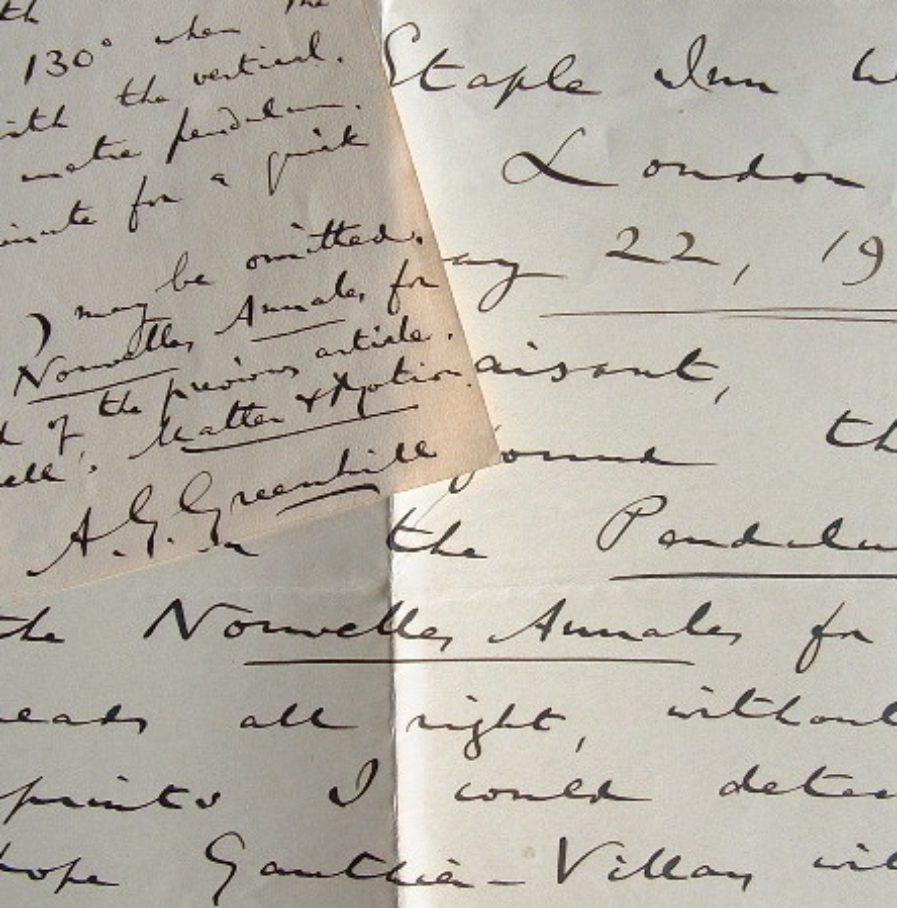 th
130° when the
with the vertical.
matic pendulum.
minute for a quick
) may be omitted.
Nouvelles Annales for
d of the previous article.
ell'. Matter & Motion.
A.G. Greenhill
Staple Inn W
London
ay 22, 19
aisant,
found th
the Pendulu
the Nouvelles Annales for
reads all right, without
prints I could detec
hope Gauthier-Villars wil